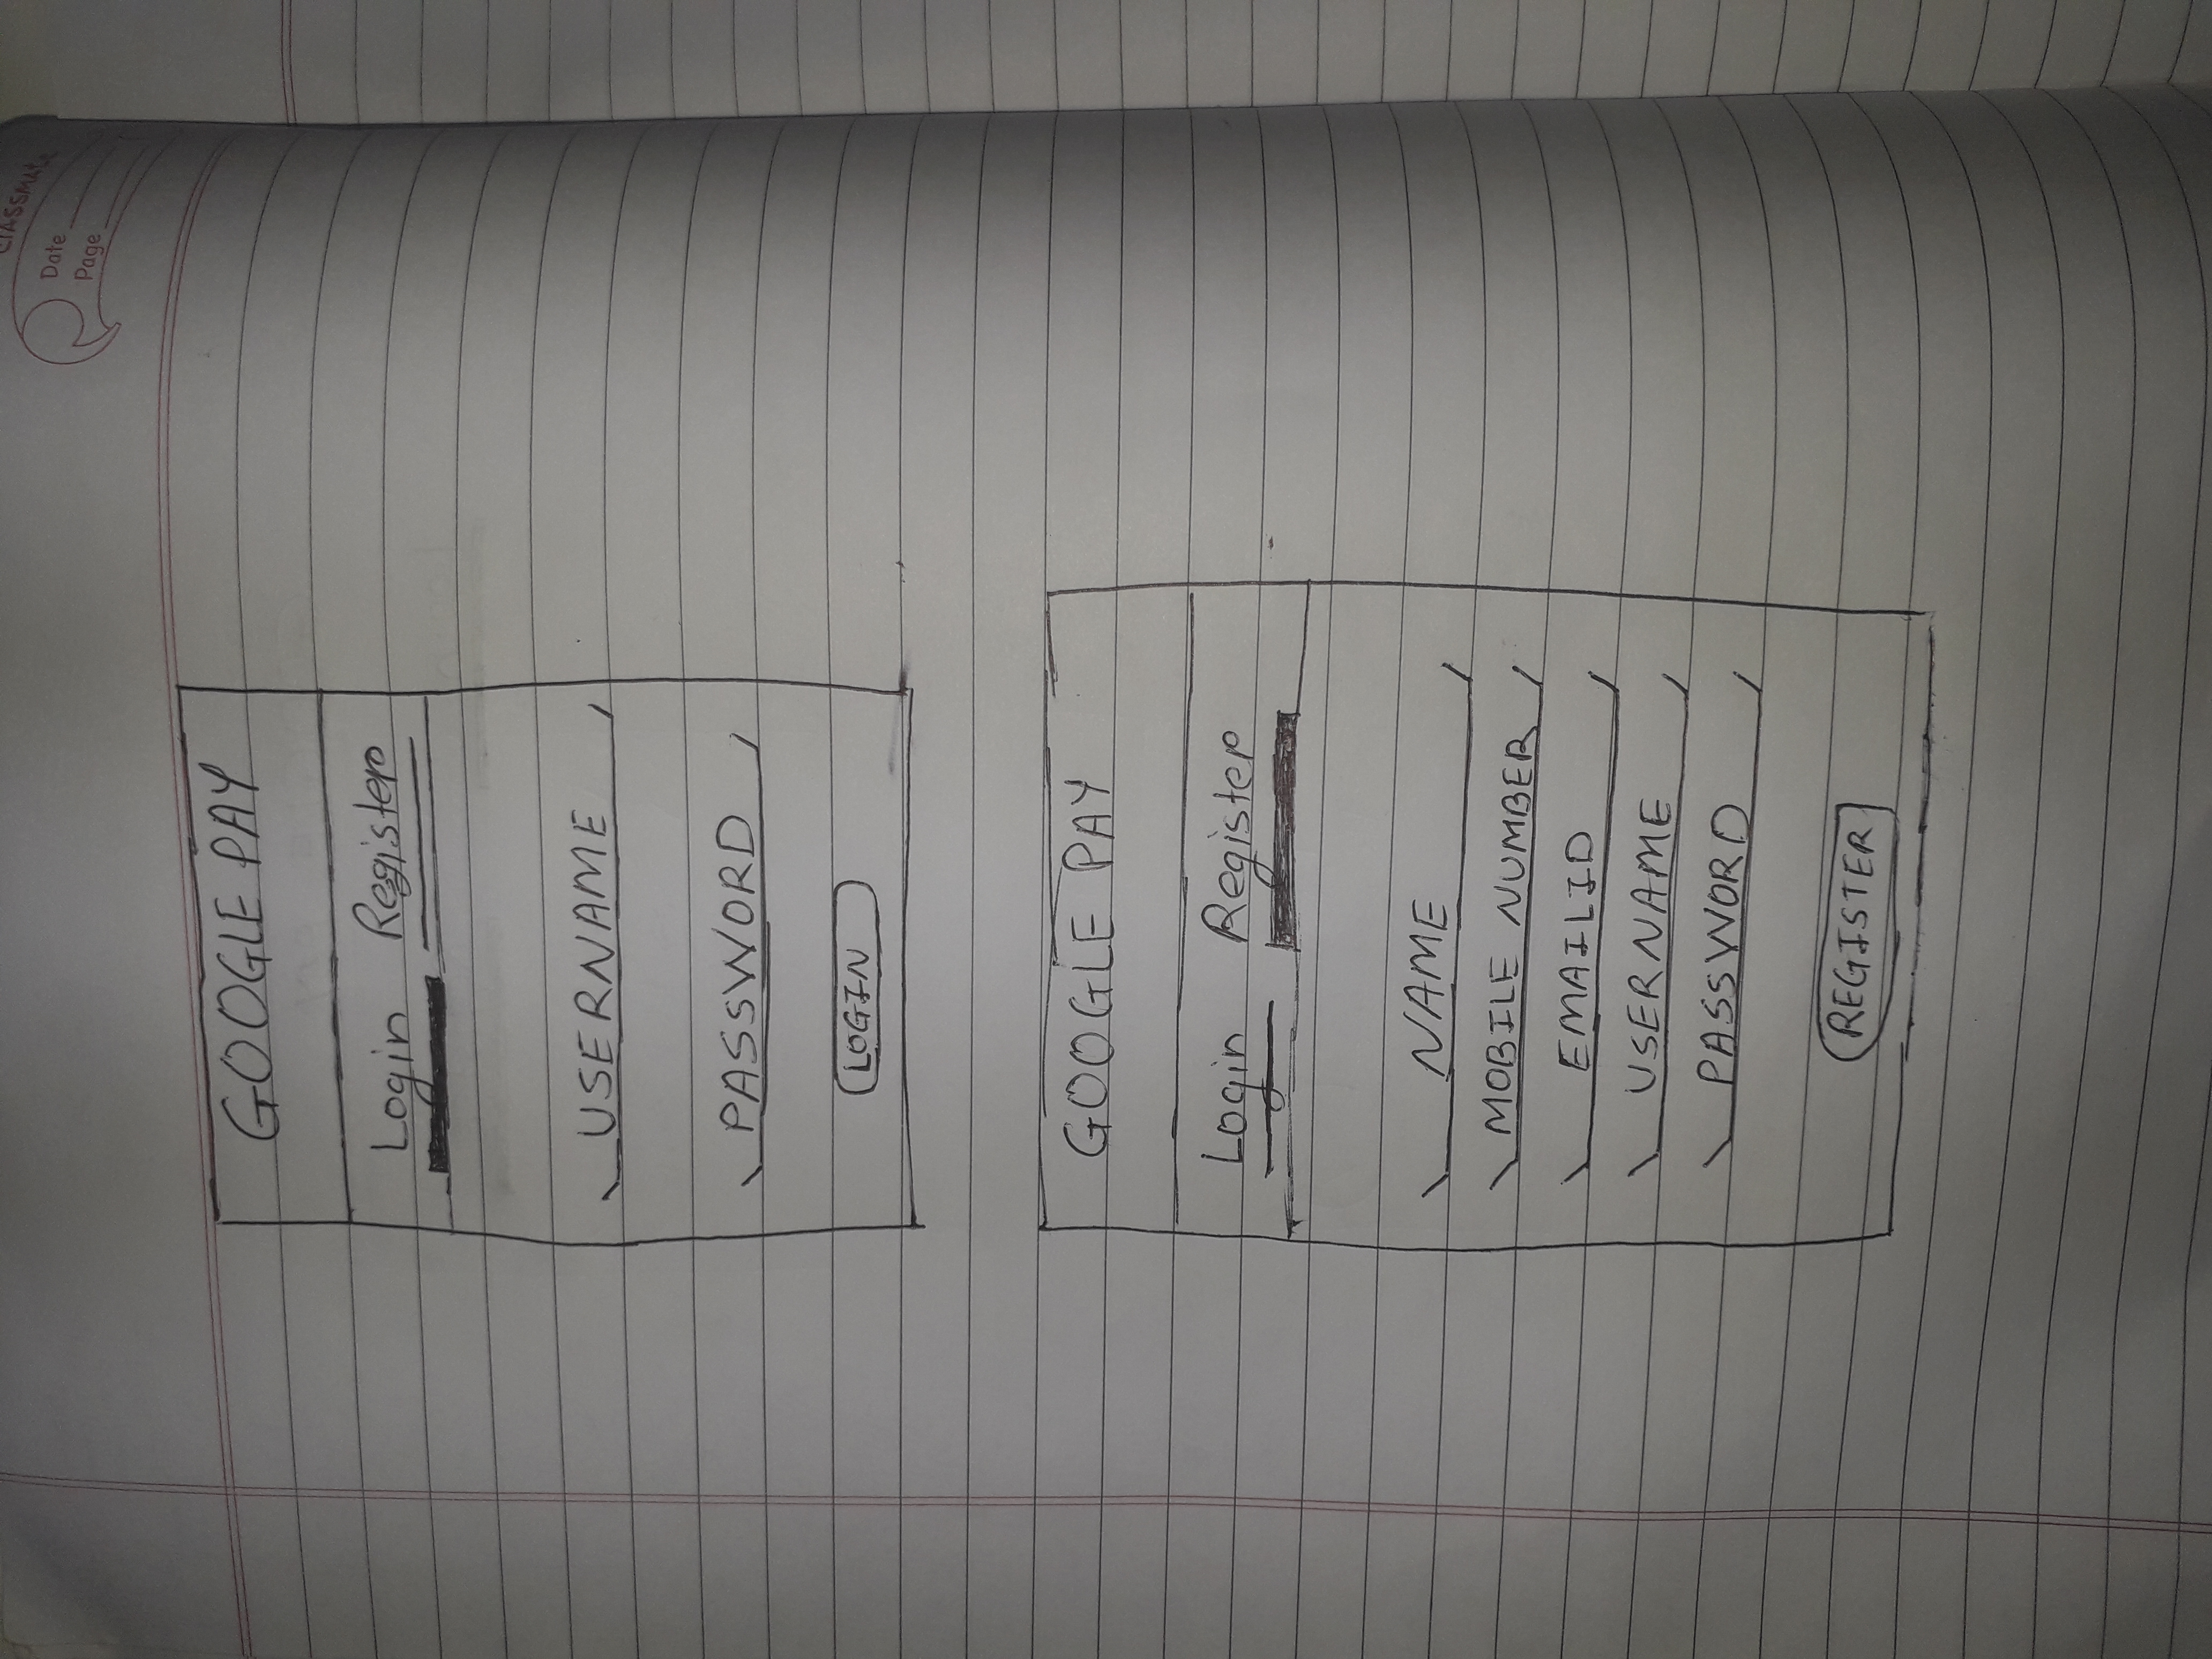 CLASSMATE
Date
Page
GOOGLE PAY
Login Register
USERNAME
PASSWORD
LOGIN
GOOGLE PAY
Login Register
NAME
MOBILE NUMBER
EMAILID
USERNAME
PASSWORD
REGISTER